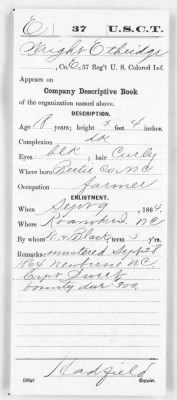 E | 37 | U.S.C.T.
Wright Etheridge
, Co. E, 37 Reg't U. S. Colored Inf.
Appears on
Company Descriptive Book
of the organization named above.
DESCRIPTION.
Age 18 years; height 5 feet 4 inches.
Complexion dk
Eyes blk ; hair Curly
Where born Co NC
Occupation farmer
ENLISTMENT.
When Sept 9, 1864.
Where Roanoke Id. NC
By whom Black; term 3 y'rs.
Remarks: mustered Sept 28
1864 Newberne NC
Capt
bounty due 300
Hadfield
Copyist.